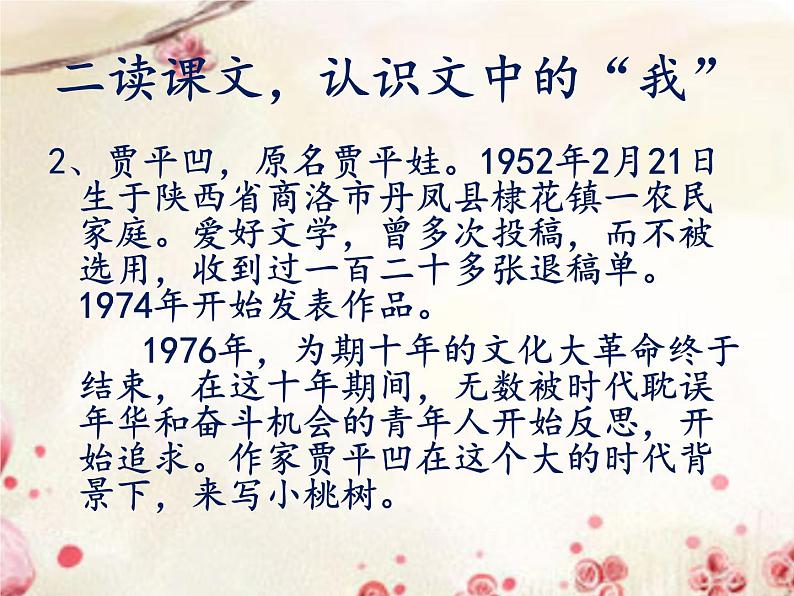 二读课文，认识文中的“我”
2、贾平凹，原名贾平娃。1952年2月21日
生于陕西省商洛市丹凤县棣花镇一农民
家庭。爱好文学，曾多次投稿，而不被
选用，收到过一百二十多张退稿单。
1974年开始发表作品。
1976年，为期十年的文化大革命终于
结束，在这十年期间，无数被时代耽误
年华和奋斗机会的青年人开始反思，开
始追求。作家贾平凹在这个大的时代背
景下，来写小桃树。